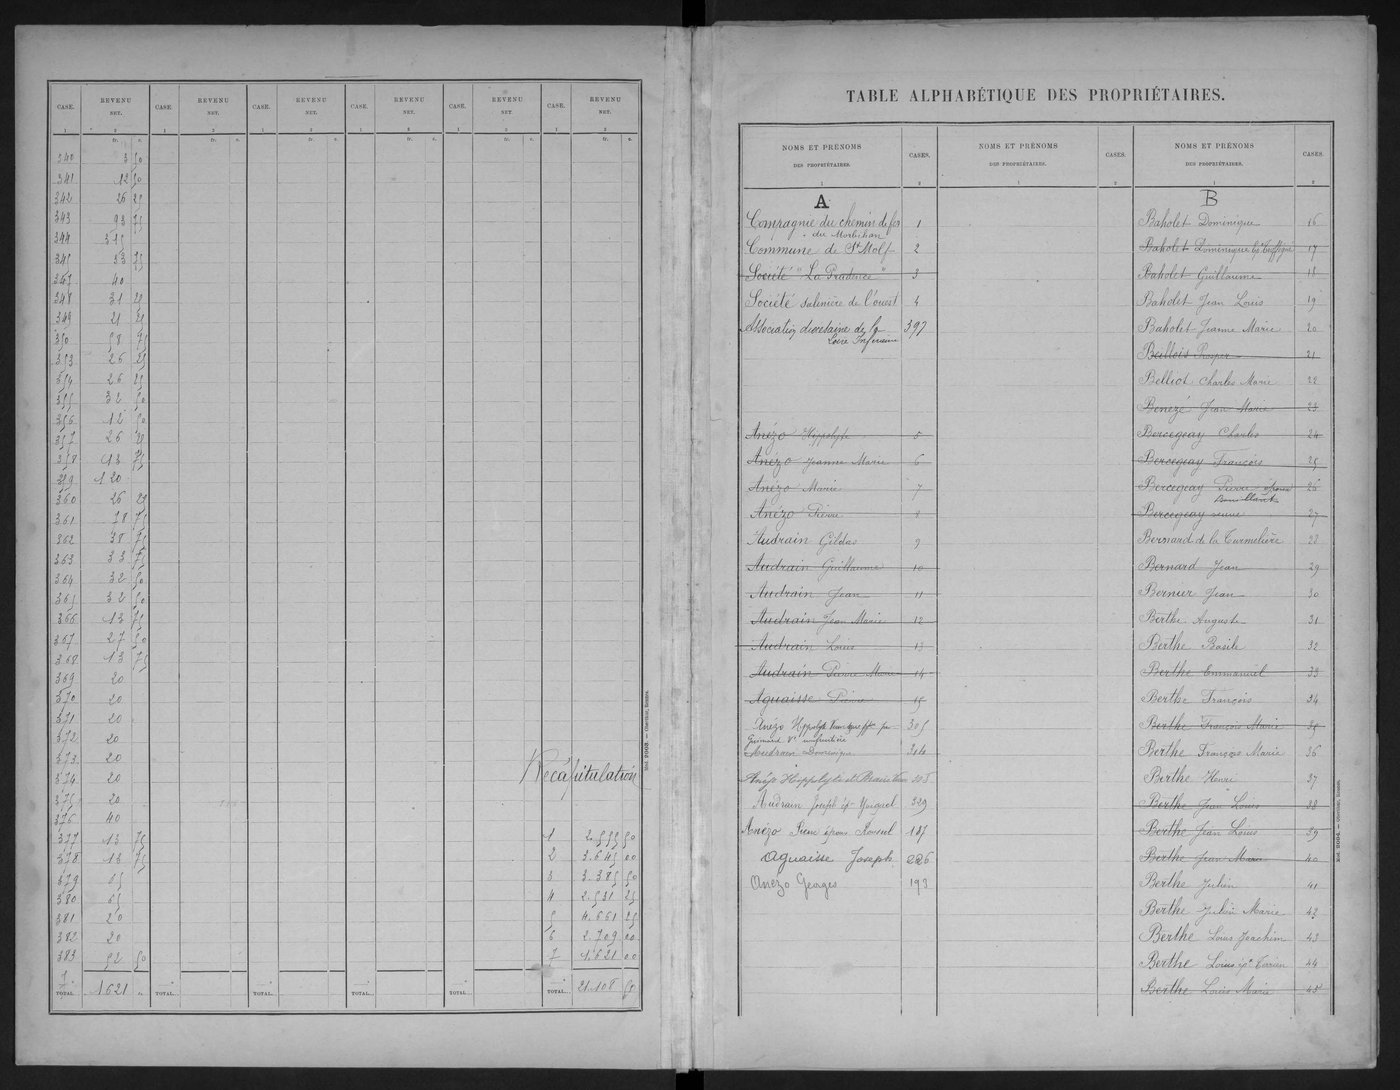 CASE. REVENU NET. CASE. REVENU NET. CASE. REVENU NET. CASE. REVENU NET. CASE. REVENU NET. CASE. REVENU NET.
1 2 1 2 1 2 1 2 1 2 1 2
fr. c. fr. c. fr. c. fr. c. fr. c. fr. c.
340 3 50
341 12 50
342 26 25
343 93 75
344 315
345 33 75
347 40
348 31 25
349 21 25
350 58 75
353 26 25
354 26 25
355 32 50
356 12 50
357 26 25
358 13 75
359 120
360 26 25
361 78 75
362 38 75
363 33 75
364 32 50
365 32 50
366 13 75
367 27 50
368 13 75
369 20
370 20
371 20
372 20
373 20
374 20
375 20
376 40
377 13 75
378 13 75
379 65
380 65
381 20
382 20
383 52 50
7
TOTAL. 1621 „ TOTAL. TOTAL. TOTAL. TOTAL.
Récapitulation
1 2.555 50
2 3.645 00
3 3.385 50
4 2.531 25
5 4.661 25
6 2.709 00
7 1.621 00
TOTAL. 21.108 50
Mod. 2003. — Oberthür, Rennes.
TABLE ALPHABÉTIQUE DES PROPRIÉTAIRES.
NOMS ET PRÉNOMS DES PROPRIÉTAIRES. CASES. NOMS ET PRÉNOMS DES PROPRIÉTAIRES. CASES. NOMS ET PRÉNOMS DES PROPRIÉTAIRES. CASES.
1 2 1 2 1 2
A
Compagnie du chemin de fer 1
du Morbihan
Commune de St Molf 2
Société "La Prudence" 3
Société salinière de l'ouest 4
Association diocésaine de la 397
Loire Inférieure
Anézo Hippolyte 5
Anézo Jeanne Marie 6
Anézo Marie 7
Anézo Pierre 8
Audrain Gildas 9
Audrain Guillaume 10
Audrain Jean 11
Audrain Jean Marie 12
Audrain Louis 13
Audrain Pierre Marie 14
Aguaisse Pierre 15
Anezo Hippolyte 305
Guimard Vve usufruitière
Audrain Dominique 344
Anézo Hippolyte et 208
Audrain Joseph ép. 329
Anézo Pierre époux Roussel 187
Aguaisse Joseph 226
Anezo Georges 193
B
Baholet Dominique 16
Baholet Dominique 17
Baholet Guillaume 18
Baholet Jean Louis 19
Baholet Jeanne Marie 20
Beillois Prosper 21
Belliot Charles Marie 22
Benezé Jean Marie 23
Bercegeay Charles 24
Bercegeay François 25
Bercegeay Pierre époux 26
Bercegeay veuve 27
Bernard de la Turmelière 28
Bernard Jean 29
Bernier Jean 30
Berthe Auguste 31
Berthe Basile 32
Berthe Emmanuel 33
Berthe François 34
Berthe François Marie 35
Berthe François Marie 36
Berthe Henri 37
Berthe Jean Louis 38
Berthe Jean Louis 39
Berthe Jean Marie 40
Berthe Julien 41
Berthe Julien Marie 42
Berthe Louis Joachim 43
Berthe Louis ép. Terrien 44
Berthe Louis Marie 45
Mod. 2004. — Oberthür, Rennes.